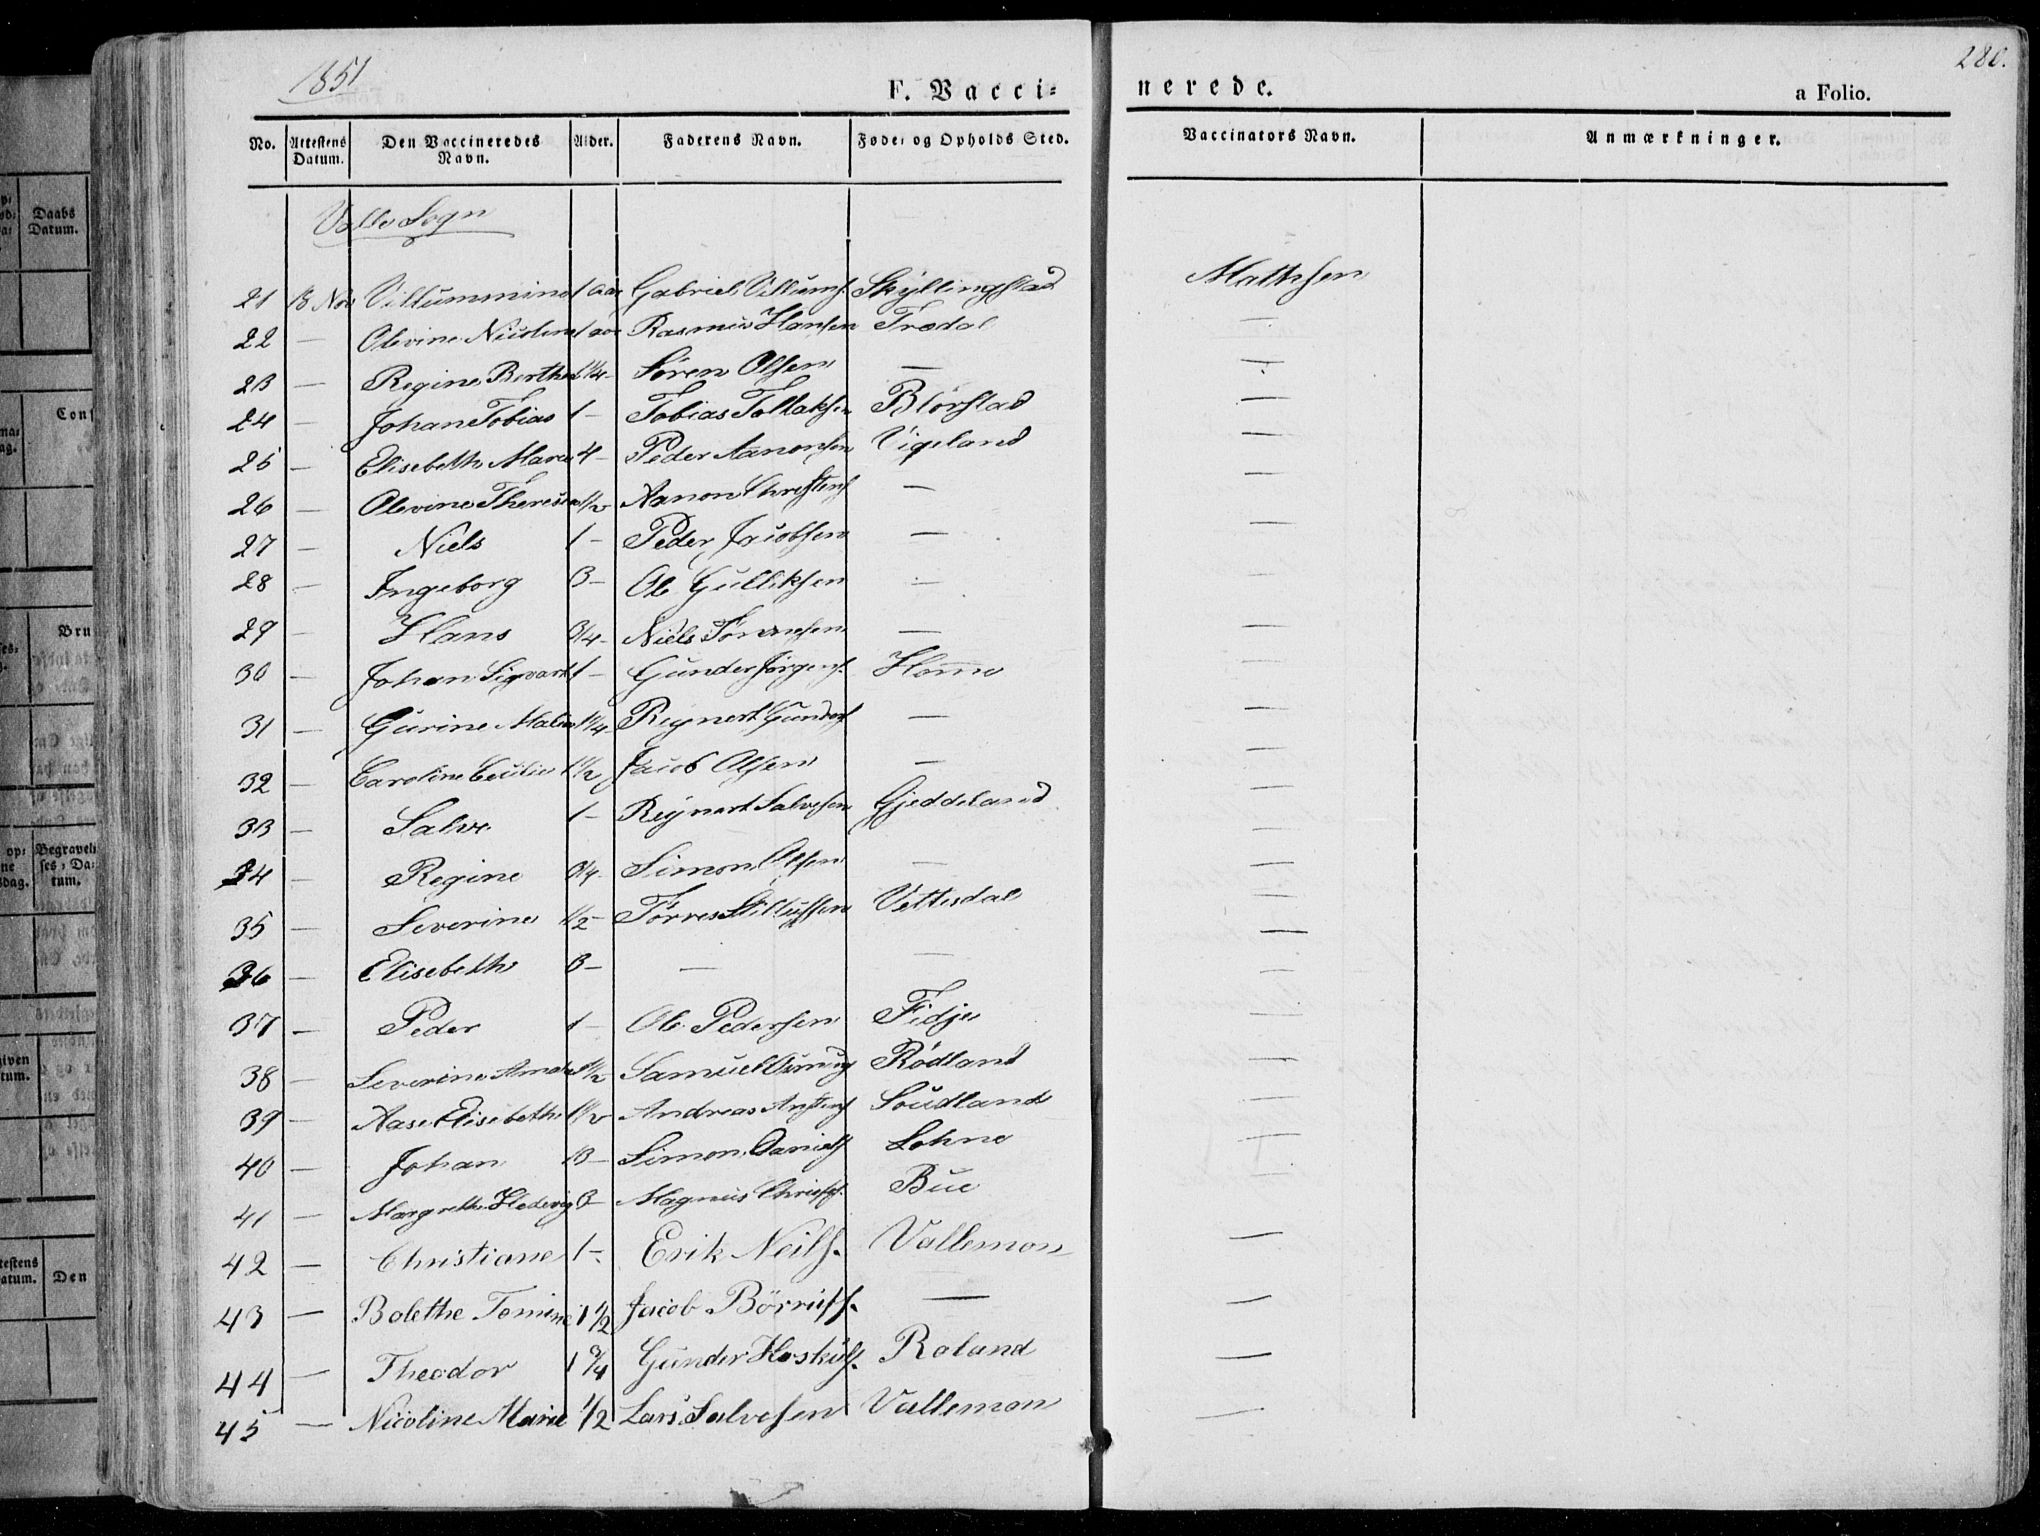 1851
280.
F. Vacci= nerede.
a Folio.
No. Attestens Datum. Den Vaccineredes Navn. Alder. Faderens Navn. Føde= og Opholds Sted. Vaccinators Navn. Anmærkninger.
Valle Sogn
21 18 Nov Villummine 1 aar Gabriel Villums. Skyllingstad Mathsen
22 — Olevine Nicoline 1 aar Rasmus Hansen Trædal —
23 — Regine Berthe 1 1/4 - Søren Olsen — —
24 — Johan Tobias 1 - Tobias Tollaksen Blørstad —
25 — Elisebeth Marie 4 - Peder Aanonsen Vigeland —
26 — Olevine Theresia 1/2 Aanon Christens — —
27 — Niels 1 - Peder Jacobsen — —
28 — Ingeborg 3 - Ole Gulliksen — —
29 — Hans 3/4 - Niels — —
30 — Johan Sigvart 1 - Gunder Jørgens. Homme —
31 — Gurine Malene 1 1/4 - Reynert Gunders — —
32 — Caroline Cecilie 1 1/2 Jacob Olsen — —
33 — Salve 1 - Reynert Salvesen Gjeddeland —
34 — Regine 3/4 - Simon Olsen — —
35 — Severine 1/2 - Torres Vettesdal —
36 — Elisebeth 3 - — — —
37 — Peder 1 - Ole Pedersen Fidje —
38 — Severine 1 1/2 Samuel Rødland —
39 — Aase Elisebeth 1 1/2 Andreas Saudland —
40 — Johan 13 - Simon Daniels Lohne —
41 — Margrethe Hedevig 3 - Magnus Bue
42 — Christiane 1 - Erik Neils. Vallemon —
43 — Bolethe Tomine 1 1/2 Jacob Børrufs. — —
44 — Theodor 1 3/4 Gunder Hoskuls. Roland —
45 — Nicoline Marie 1/2 Lars Salvesen Vallemon —